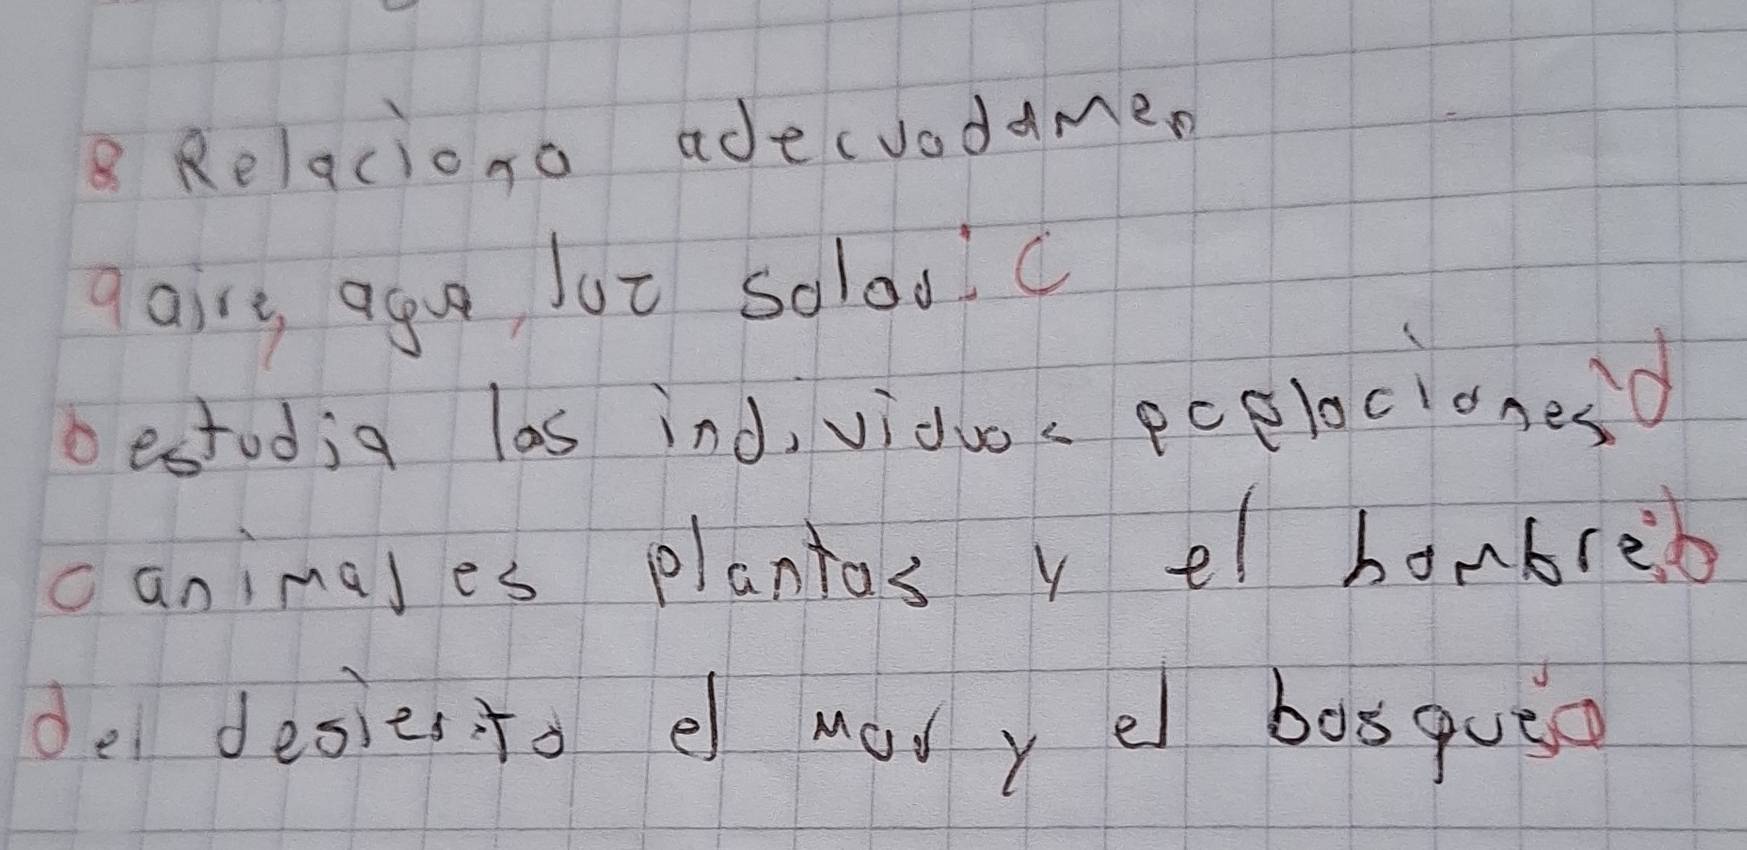 8 Relaciona adecvadamen
a aire, agua, luz solar: c
b estudia los individuos poplaciones: d
c animales plantas y el hombre: b
d el desierito el mar y el bosque: a